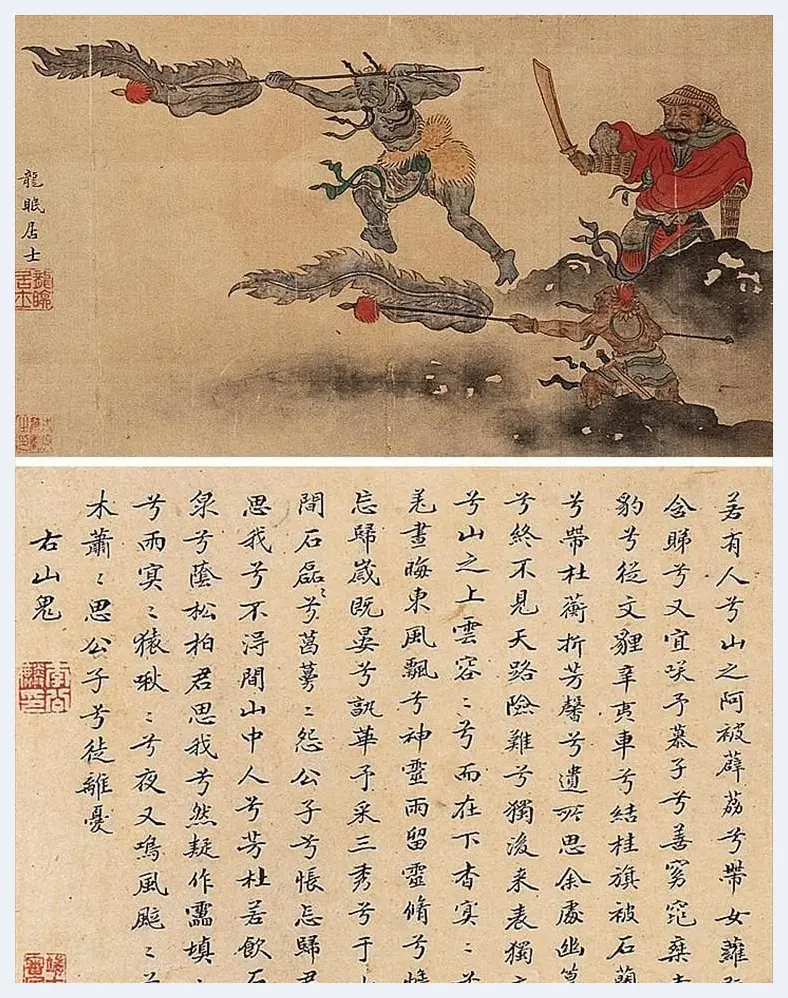 龍眠居士
龍眠居士
若有人兮山之阿被薜荔兮帶女蘿
含睇兮又宜咲予慕子兮善窈窕乗赤
豹兮從文貍辛夷車兮結桂旗被石蘭
兮帶杜蘅折芳馨兮遺所思余處幽篁
兮終不見天路險難兮獨後来表獨立
兮山之上雲容〻兮而在下杳冥〻兮
羌晝晦東風飄兮神靈雨留靈脩兮憺
忘歸歲既晏兮孰華予采三秀兮于山
間石磊〻兮葛蔓〻怨公子兮悵忘歸君
思我兮不得間山中人兮芳杜若飲石
泉兮蔭松柏君思我兮然疑作靁填〻
兮雨冥〻猿啾〻兮夜又鳴風颯〻兮
木蕭〻思公子兮徒離憂
右山鬼